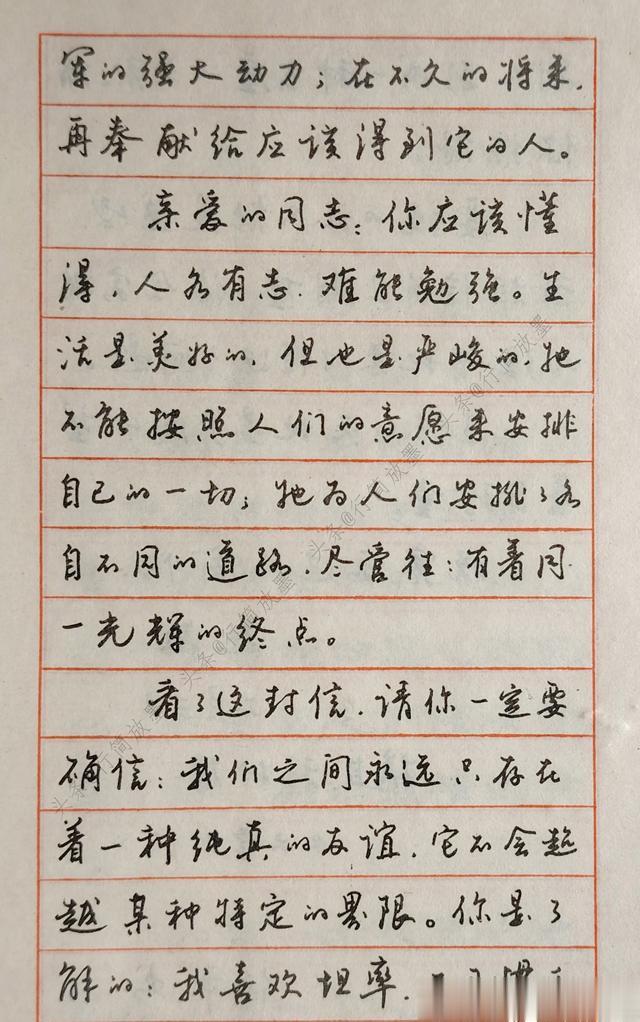 军的强大动力；在不久的将来，
再奉献给应该得到它的人。
亲爱的同志：你应该懂
得，人各有志，难能勉强。生
活是美好的，但也是严峻的，她
不能按照人们的意愿来安排
自己的一切；她为人们安排了各
自不同的道路，尽管往：有着同
一光辉的终点。
看了这封信，请你一定要
确信：我们之间永远只存在
着一种纯真的友谊，它不会超
越某种特定的界限。你是了
解的：我喜欢坦率，
头条@行简放墨
头条@行简放墨
头条@行简放墨
头条@行简放墨